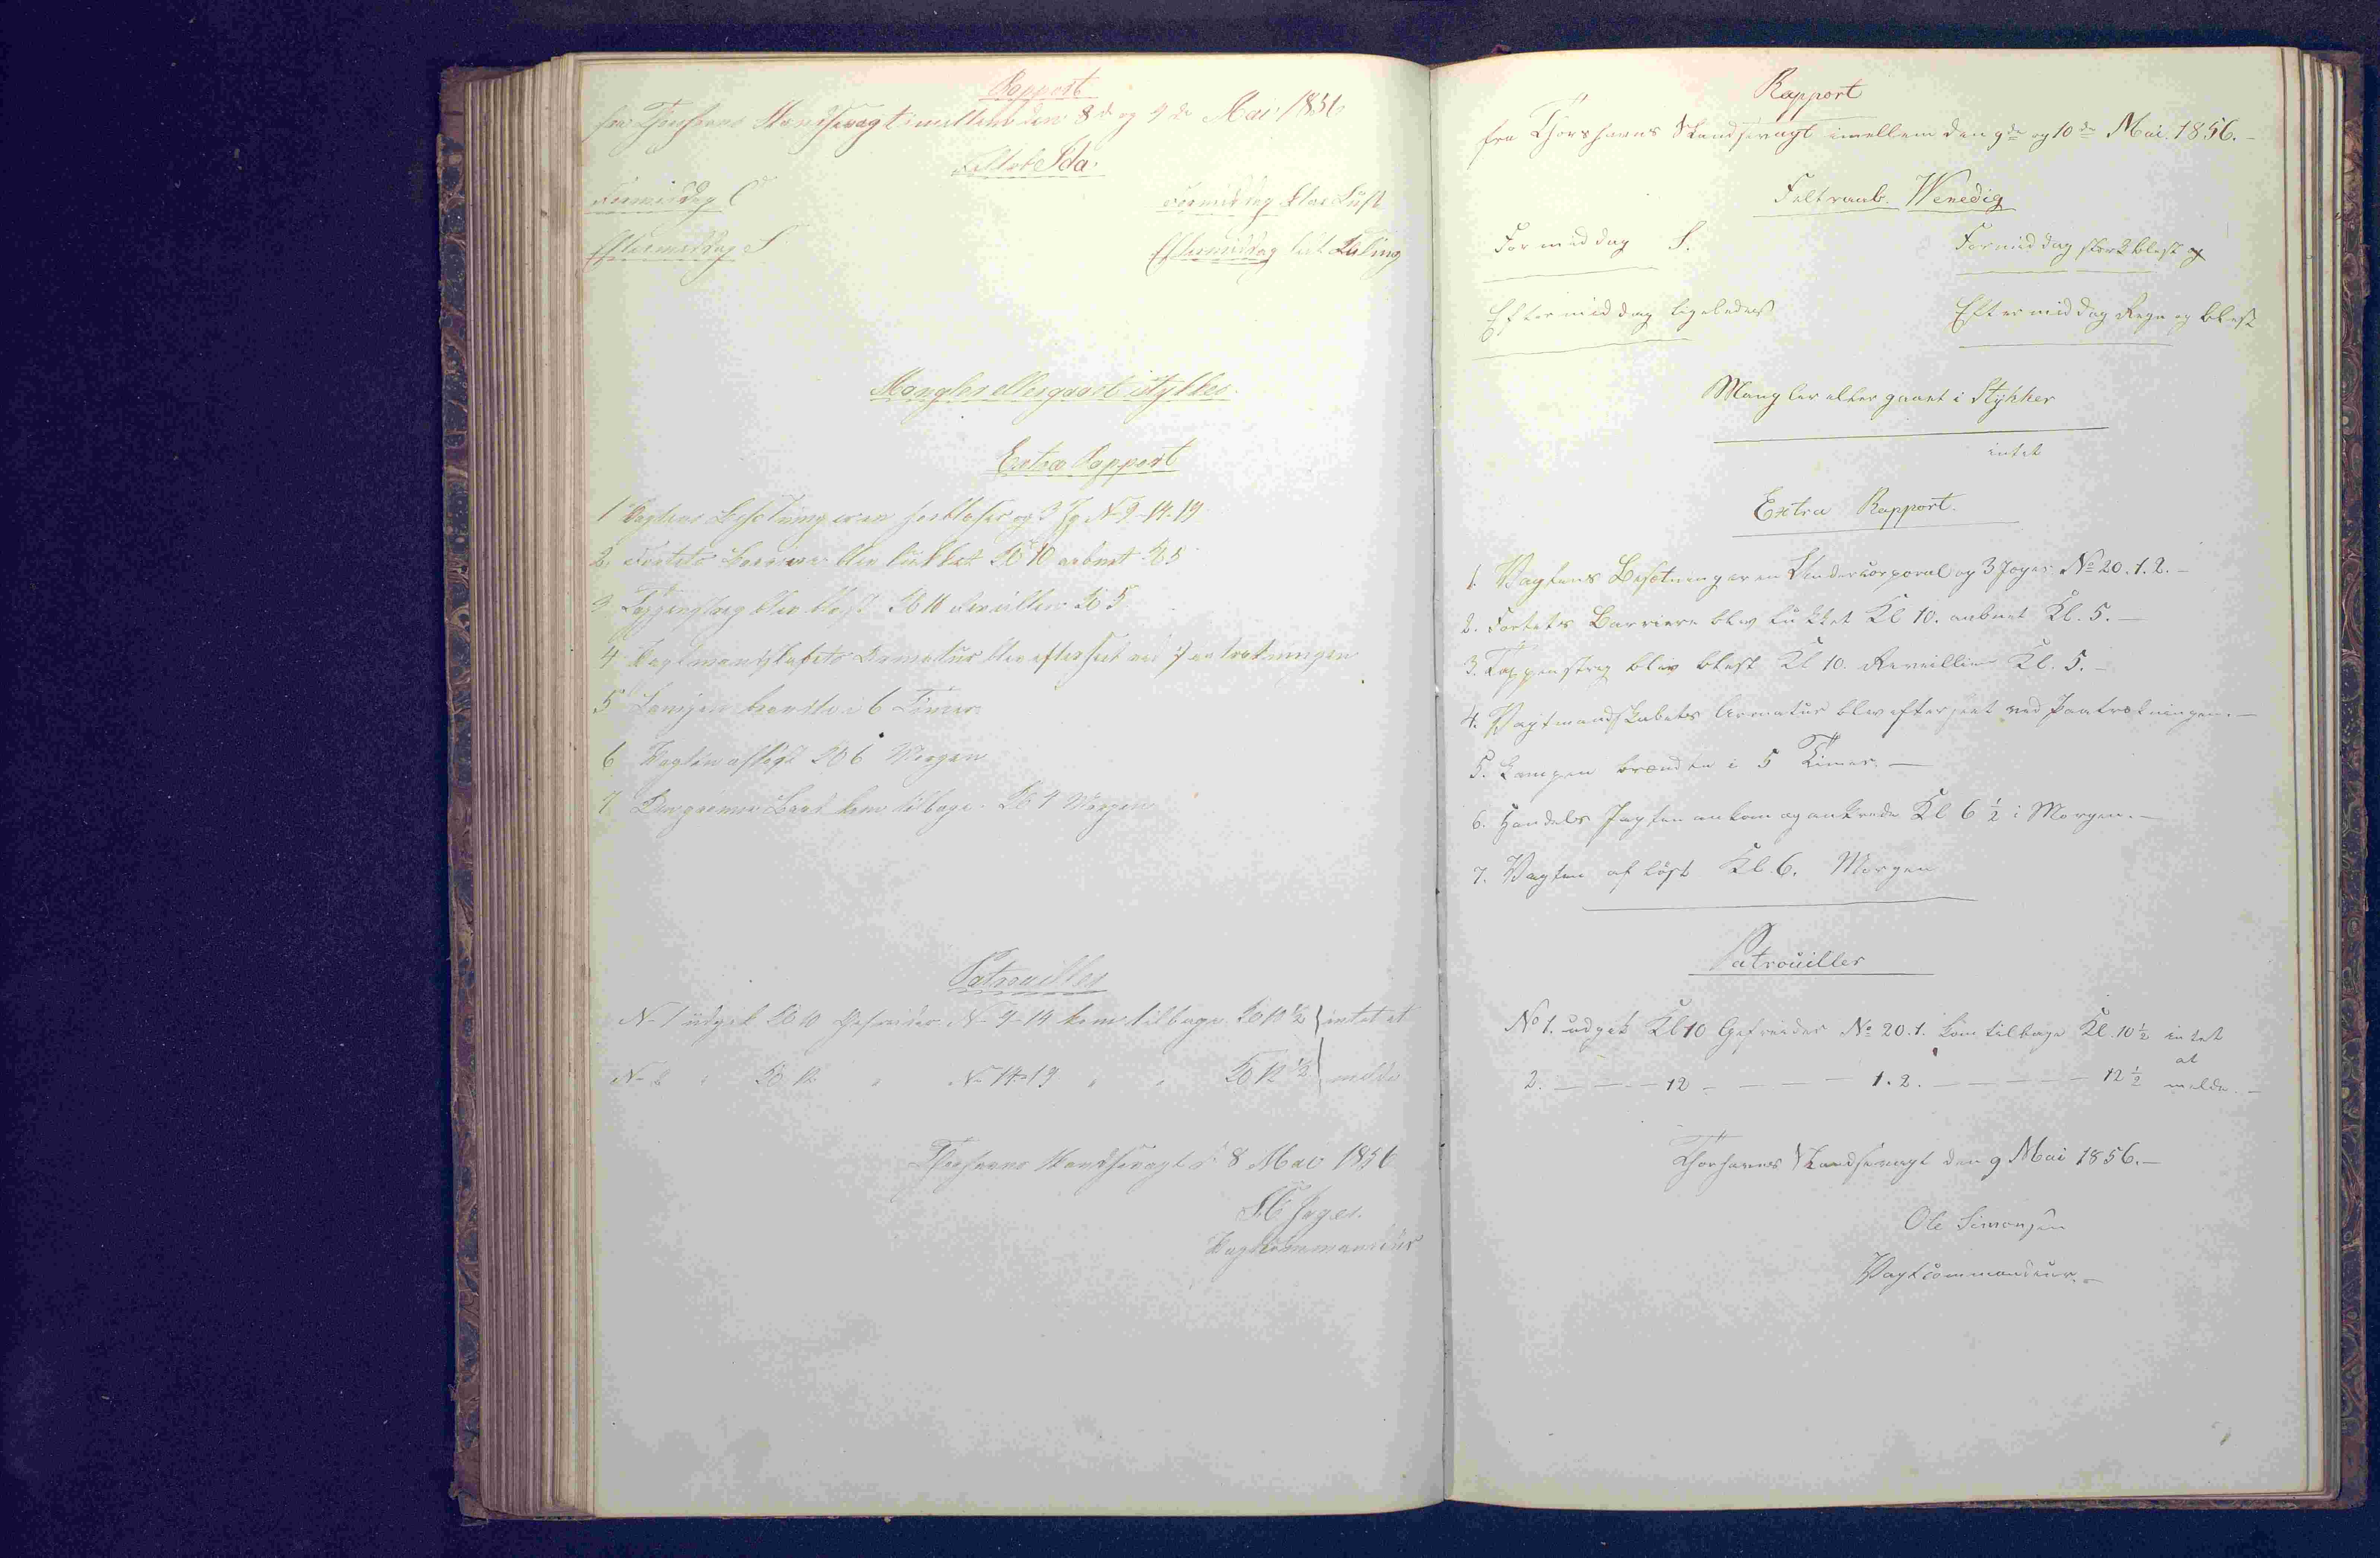 Rapport
fra Thorshavns Skandsevagt imellem den 8de og 9de Mai 1856
Feltrob Ida.
Formiddag C
Formiddag Stoe Luft
Eftermiddag S
Eftermiddag let Kuling
Mangler eller gaaet i Stykker
Extra Rapport
1 Vagtens Besætning er en og 3 Jg No 9-14-19
2 Fortets Barriere blev lukket Kl 10 aabnet Kl 5
3 Tappenstreg blev blæst Kl 10 Reveillen Kl 5
4 Vagtmandskabets Armatur blev efterseet ved Paatrædningen
5 Lampen brændte i 6 Timer
6 Vagten afløst Kl 6 Morgen
7 Baad kom tilbage Kl 4 Morgen
Patrouiller
No 1 udgik Kl 10 Gefreider No 9-14 kom tilbage Kl 10 1/2 intet at
No 2 " Kl 12 " No 14-19 " " Kl 12 1/2 melde
Thorshavns Skandsevagt d 8 Mai 1856
Jæger.
Vagtcommandeur
Rapport
fra Thorshavns Skandsevagt imellem den 9de og 10de Mai 1856.-
Feltraab. Wenedig
Formiddag S.
Formiddag stærk blæst og
Eftermiddag ligeledes
Eftermiddag Regn og blæst
Mangler eller gaaet i Stykker
intet
Extra Rapport.
1. Vagtens Besætning er en Undercorporal og 3 Jæger No 20.1.2.-
2. Fortets Barriere blev lukket Kl 10. aabnet Kl. 5.-
3. Tappenstreg blev blæst Kl 10. Reveillen Kl. 5.-
4. Vagtmandskabets Armatur blev efterseet ved Paatrædningen.-
5. Lampen brændte i 5 Timer.-
6. Handels Jagten ankom og ankrede Kl 6 1/2 i Morgen.-
7. Vagten afløst Kl. 6. Morgen
Patrouiller
No 1. udgik Kl 10 Gefreider No 20.1. kom tilbage Kl. 10 1/2 intet
at
2. - - - 12 - - - - 1.2. - - - - - 12 1/2 melde.-
Thorshavns Skandsevagt den 9 Mai 1856.-
Ole Simonsen
Vagtcommandeur.-